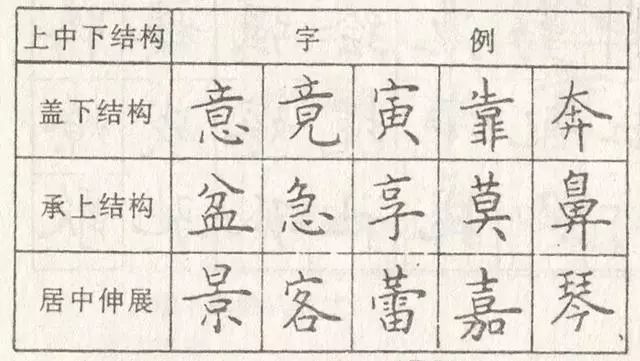 上中下结构 字 例
盖下结构 意 竟 寅 靠 奔
承上结构 盆 急 享 莫 鼻
居中伸展 景 客 蕾 嘉 琴